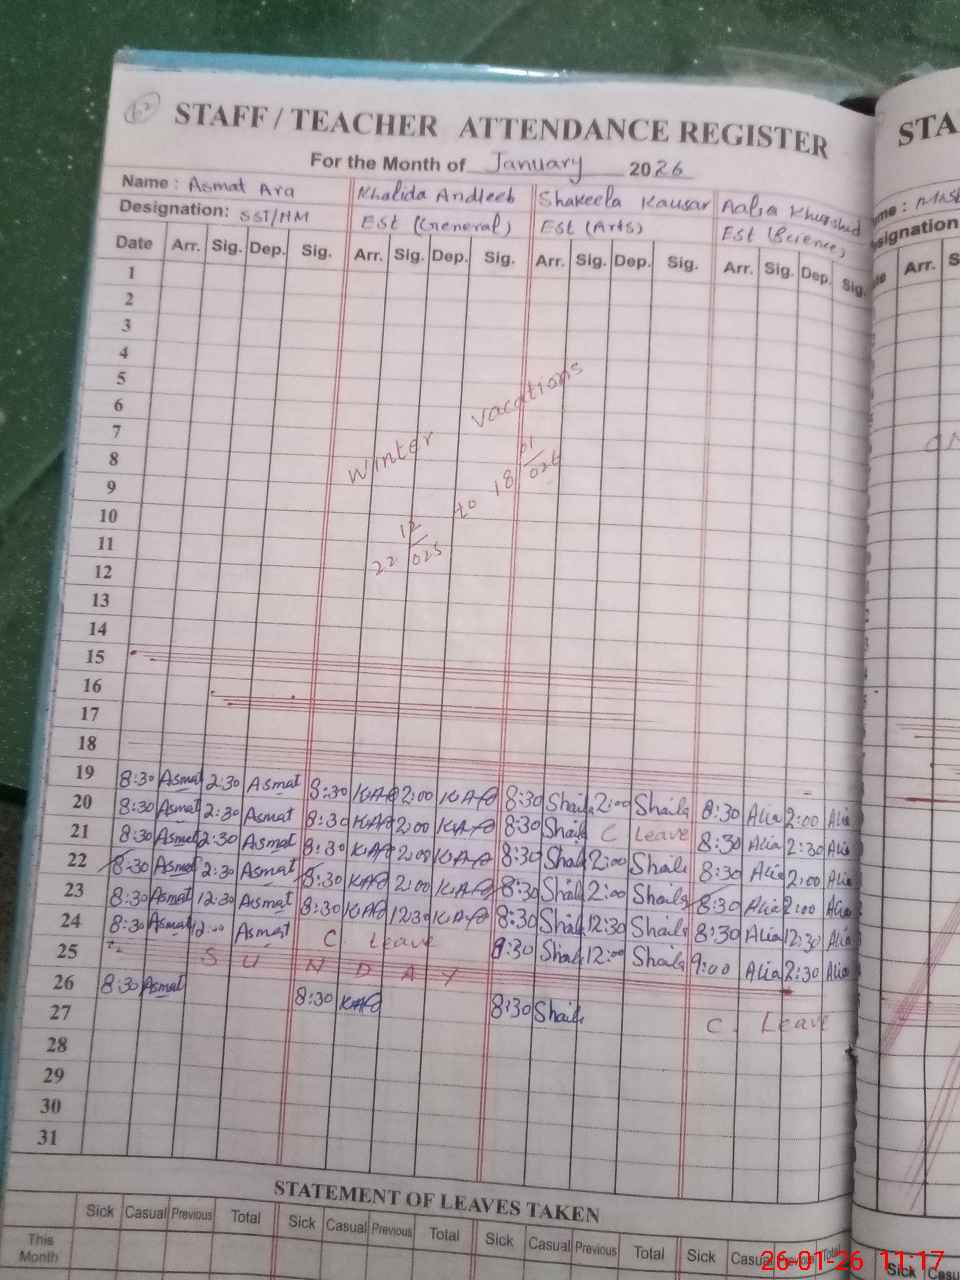 STAFF / TEACHER ATTENDANCE REGISTER STA
For the Month of January 2026
Name : Asmat Ara Khalida Andleeb Shakeela Kausar Aalia Khurshid
Designation: SST/HM EST (General) EST (Arts) EST (Science)
Date Arr. Sig. Dep. Sig. Arr. Sig. Dep. Sig. Arr. Sig. Dep. Sig. Arr. Sig. Dep. Sig. Arr.
1
2
3
4
5
6
7
8
9
10
11
12
13
14
15
16
17
18
Winter vacations
22 12/025 to 18 01/026
19 8:30 Asmat 2:30 Asmat 8:30 KAD 2:00 KAD 8:30 Shail 2:00 Shaila 8:30 Alia 2:00 Alia
20 8:30 Asmat 2:30 Asmat 8:30 KAD 2:00 KAD 8:30 Shail C Leave 8:30 Alia 2:30 Alia
21 8:30 Asmat 2:30 Asmat 8:30 KAD 2:00 KAD 8:30 Shail 2:00 Shaila 8:30 Alia 2:00 Alia
22 8:30 Asmat 2:30 Asmat 8:30 KAD 2:00 KAD 8:30 Shail 2:00 Shaila 8:30 Alia 2:00 Alia
23 8:30 Asmat 12:30 Asmat 8:30 KAD 12:30 KAD 8:30 Shail 12:30 Shaila 8:30 Alia 12:30 Alia
24 8:30 Asmat 12:00 Asmat C. Leave 8:30 Shail 12:00 Shaila 9:00 Alia 2:30 Alia
25 S U N D A Y
26 8:30 Asmat 8:30 KAD 8:30 Shail C. Leave
27
28
29
30
31
STATEMENT OF LEAVES TAKEN
Sick Casual Previous Total Sick Casual Previous Total Sick Casual Previous Total Sick Casual Previous Total Sick
This Month
26-01-26 11:17